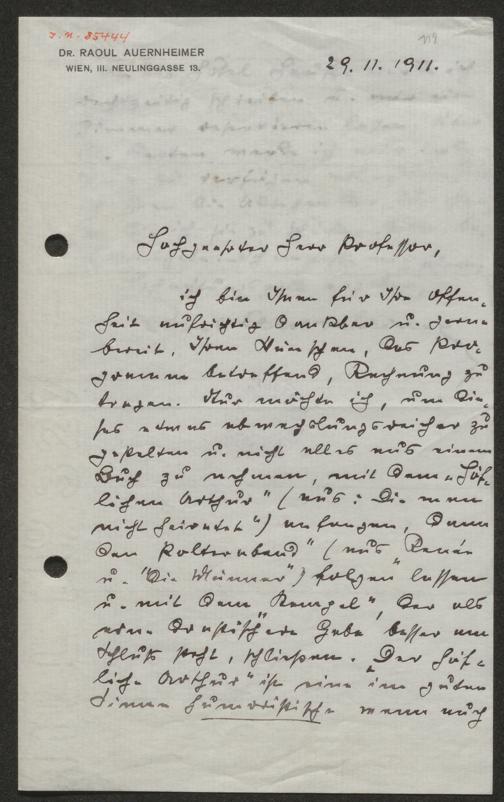 I.N. 85444
119
DR. RAOUL AUERNHEIMER
WIEN, III. NEULINGGASSE 13.
29. 11. 1911.
Hochgeehrter Herr Professor,
ich bin Ihnen für Ihre Offen-
heit aufrichtig dankbar u. gerne
bereit, Ihren Wünschen, das Pro-
gramm betreffend, Rechnung zu
tragen. Nur möchte ich, um die-
ses etwas abwechslungsreicher zu
gestalten u. nicht alles aus einem
Buch zu nehmen, mit dem „Höf-
lichen Arthur" (aus: Die man
nicht heiratet") anfangen, dann
den Polterabend" (aus Renée
u. "Die Männer") folgen lassen
u. mit dem "Rempel", der als
eine drastischere Gabe besser am
Schluß steht, schließen. „Der höf-
liche Arthur" ist eine im guten
Sinne humoristische wenn auch